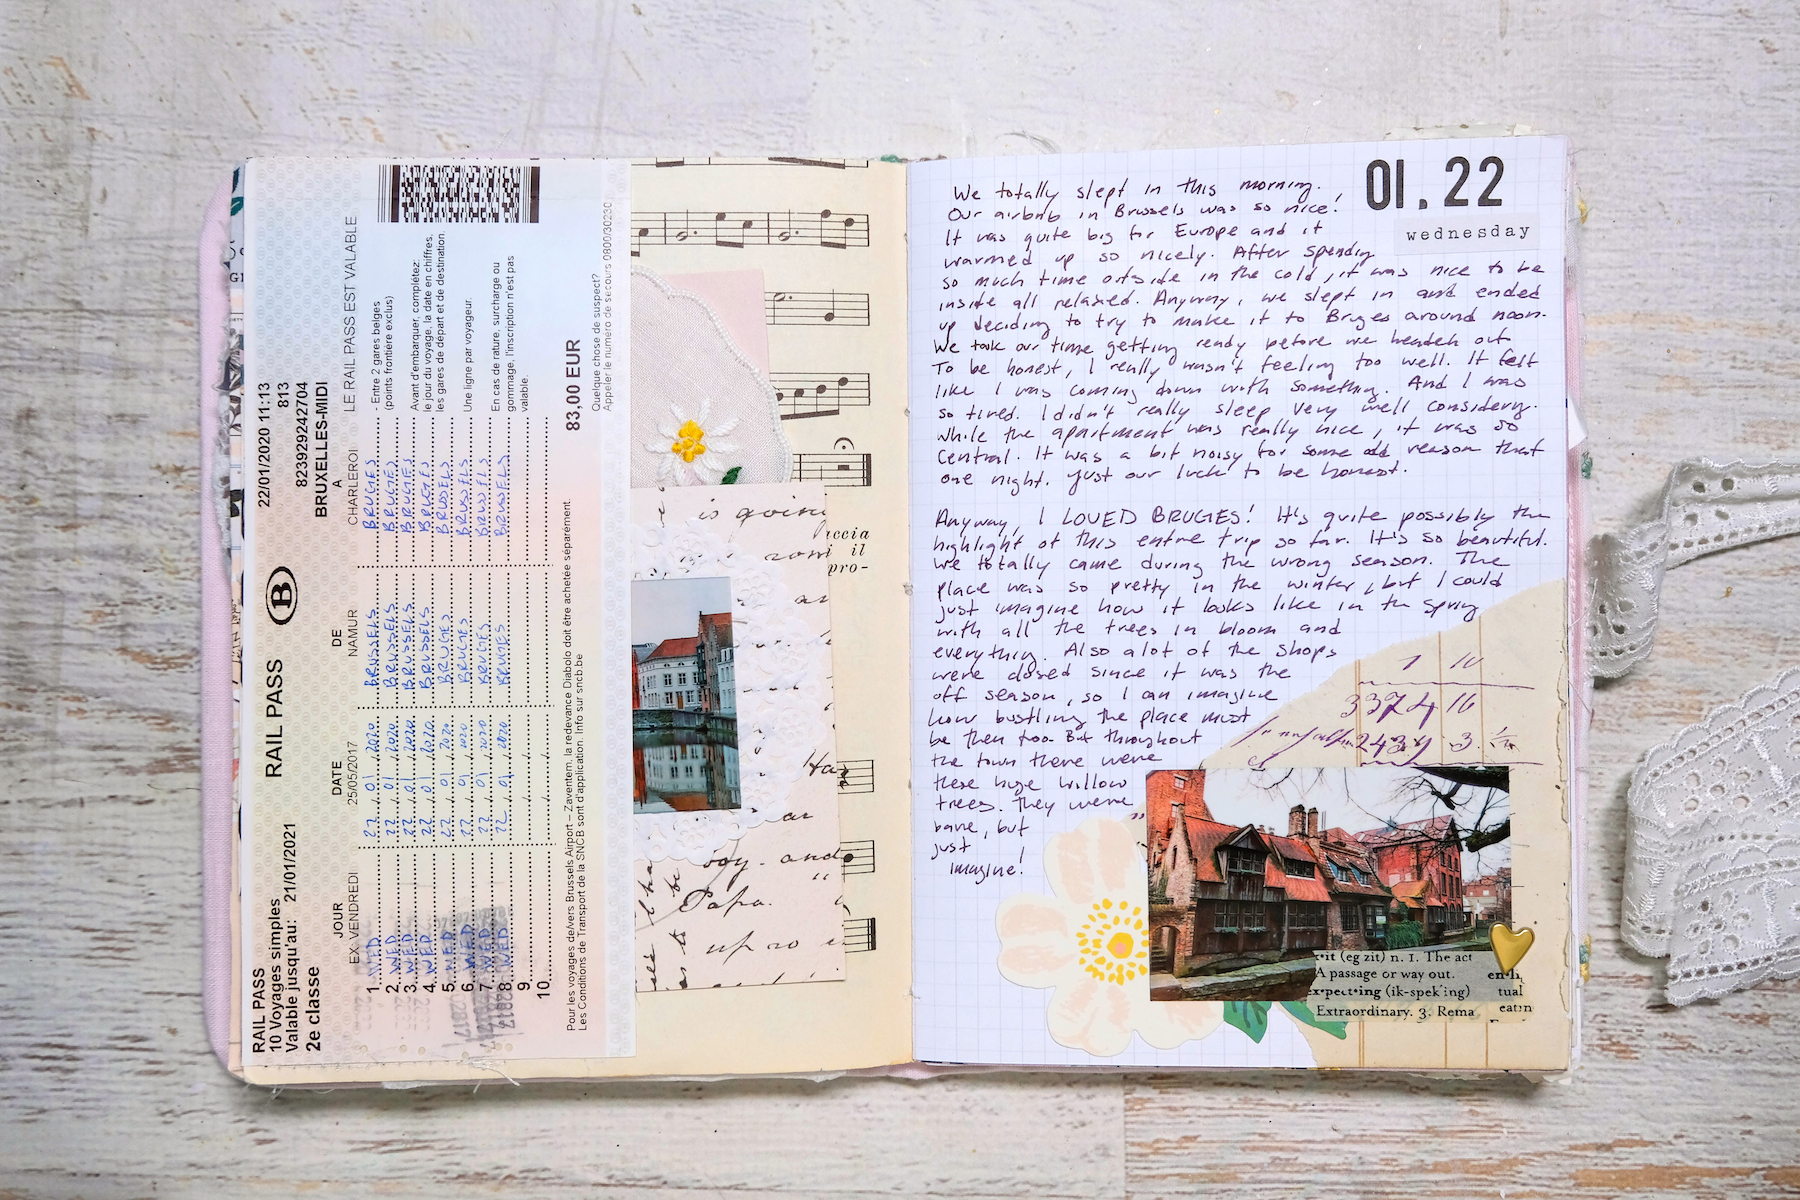 RAIL PASS
10 Voyages simples
Valable jusqu'au: 21/01/2021
2e classe
RAIL PASS
B
22/01/2020 11:13
813
823929242704
BRUXELLES-MIDI
JOUR DATE DE A
EX VENDREDI 25/05/2017 NAMUR CHARLEROI
1. WED 22.01.2020 BRUSSELS BRUGES
2. WED 22.01.2020 BRUSSELS BRUGES
3. WED 22.01.2020 BRUSSELS BRUGES
4. WED 22.01.2020 BRUSSELS BRUGES
5. WED 22.01.2020 BRUGES BRUSSELS
6. WED 22.01.2020 BRUGES BRUSSELS
7. WED 22.01.2020 BRUGES BRUSSELS
8. WED 22.01.2020 BRUGES BRUSSELS
9.
10.
LE RAIL PASS EST VALABLE
- Entre 2 gares belges
(points frontière exclus)
Avant d'embarquer, complétez:
le jour du voyage, la date en chiffres,
les gares de départ et de destination.
Une ligne par voyageur.
En cas de rature, surcharge ou
gommage, l'inscription n'est pas
valable.
83,00 EUR
Pour les voyages de/vers Brussels Airport – Zaventem, la redevance Diabolo doit être achetée séparément.
Les Conditions de Transport de la SNCB sont d'application. Info sur sncb.be
Quelque chose de suspect?
Appeler le numéro de secours 0800/30230
is going
il
pro-
and
Papa.
up
01.22
wednesday
We totally slept in this morning.
Our airbnb in Brussels was so nice!
It was quite big for Europe and it
warmed up so nicely. After spending
so much time outside in the cold, it was nice to be
inside all relaxed. Anyway, we slept in and ended
up deciding to try to make it to Bruges around noon.
We took our time getting ready before we headed out
To be honest, I really wasn't feeling too well. It felt
like I was coming down with something. And I was
so tired. I didn't really sleep very well considering.
While the apartment was really nice, it was so
Central. It was a bit noisy for some odd reason that
one night. Just our luck to be honest.
Anyway, I LOVED BRUGES! It's quite possibly the
highlight of this entire trip so far. It's so beautiful.
We totally came during the wrong season. The
place was so pretty in the winter, but I could
just imagine how it looks like in the Spring
with all the trees in bloom and
everything. Also alot of the shops
were closed since it was the
off season, so I can imagine
how bustling the place must
be then too. But throughout
the town there were
these huge willow
trees. They were
bare, but
just
imagine!
7 10
3374 16
2439 3.
x•it (eg zit) n. 1. The act
A passage or way out.
ex•pect•ing (ik-spek'ing)
Extraordinary. 3. Rema
tual